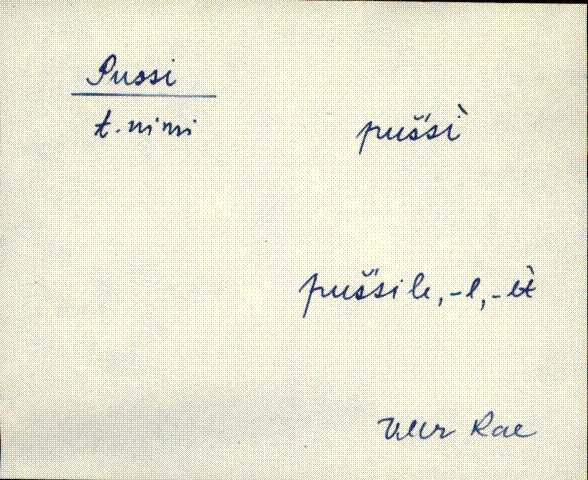 Pussi
t. nimi
pušśì̬
pušśile, -l, -lt̀
VMr Rae